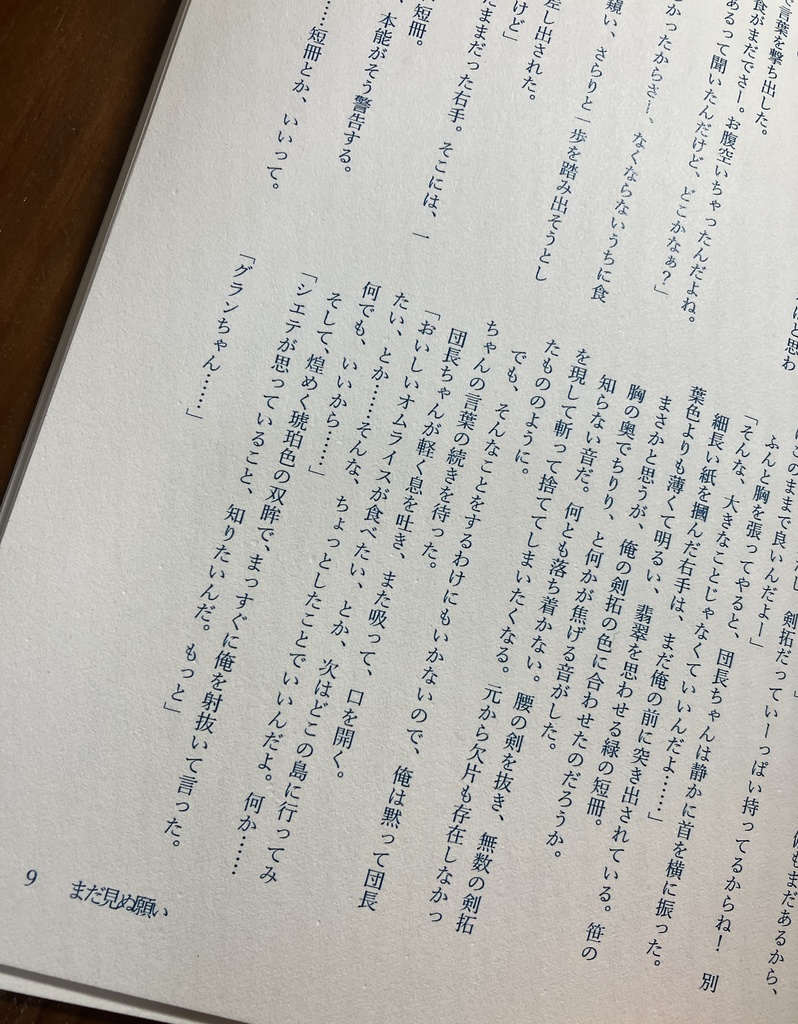 で言葉を撃ち出した。
食がまだでさー。お腹空いちゃったんだよね。
あるって聞いたんだけど、どこかなぁ？」
かったからさー、なくならないうちに食
頬い、さらりと一歩を踏み出そうとし
差し出された。
けど」
たままだった右手。そこには、一
短冊。
、本能がそう警告する。
……短冊とか、いいって。
けと思わ
俺もまだあるから、
はこのままで良いんだよー」
ふんと胸を張ってやると、団長ちゃんは静かに首を横に振った。
剣拓だっていーっぱい持ってるからね！　別
「そんな、大きなことじゃなくていいんだよ……」
細長い紙を摑んだ右手は、まだ俺の前に突き出されている。笹の
葉色よりも薄くて明るい、翡翠を思わせる緑の短冊。
まさかと思うが、俺の剣拓の色に合わせたのだろうか。
胸の奥でちりり、と何かが焦げる音がした。
知らない音だ。何とも落ち着かない。腰の剣を抜き、無数の剣拓
を現して斬って捨ててしまいたくなる。元から欠片も存在しなかっ
たもののように。
でも、そんなことをするわけにもいかないので、俺は黙って団長
ちゃんの言葉の続きを待った。
団長ちゃんが軽く息を吐き、また吸って、口を開く。
「おいしいオムライスが食べたい、とか、次はどこの島に行ってみ
たい、とか……そんな、ちょっとしたことでいいんだよ。何か……
何でも、いいから……」
そして、煌めく琥珀色の双眸で、まっすぐに俺を射抜いて言った。
「シエテが思っていること、知りたいんだ。もっと」
「グランちゃん……」
9
まだ見ぬ願い